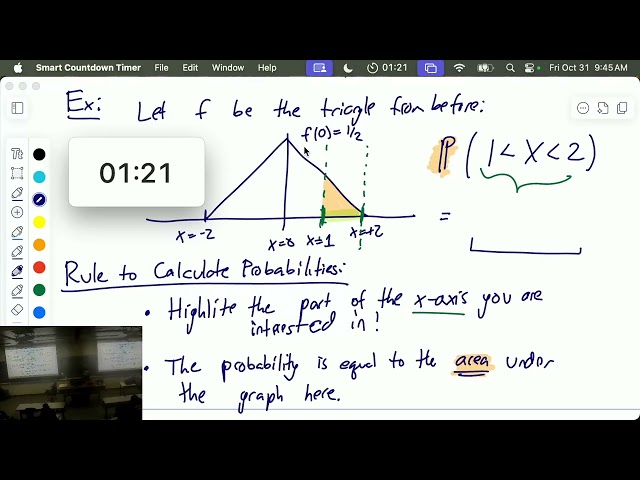 Smart Countdown Timer Window Help 01:21 Fri Oct 31 9:45 AM
Ex: Let f be the triagle from before:
f(0)=1/2
P(1<X<2)
01:21
=
x=-2 x=0 x=1 x=+2
Rule to Calculate Probabilities:
• Highlite the part of the x-axis you are
interested in!
• The probability is equal to the area under
the graph here.